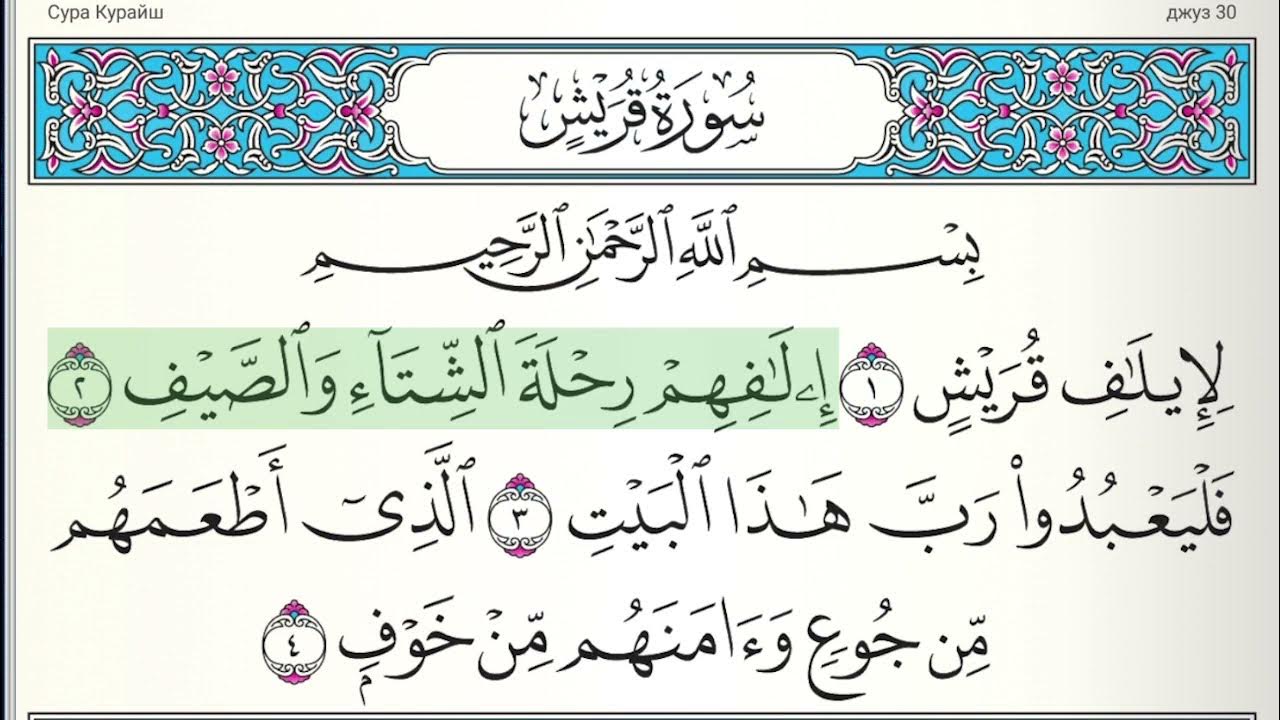 Сура Курайш
джуз 30
سُورَةُ قُرَيْشٍ
بِسْمِ ٱللَّهِ ٱلرَّحْمَٰنِ ٱلرَّحِيمِ
لِإِيلَٰفِ قُرَيْشٍ ١ إِۦلَٰفِهِمْ رِحْلَةَ ٱلشِّتَآءِ وَٱلصَّيْفِ ٢
فَلْيَعْبُدُوا۟ رَبَّ هَٰذَا ٱلْبَيْتِ ٣ ٱلَّذِىٓ أَطْعَمَهُم
مِّن جُوعٍ وَءَامَنَهُم مِّنْ خَوْفٍۭ ٤